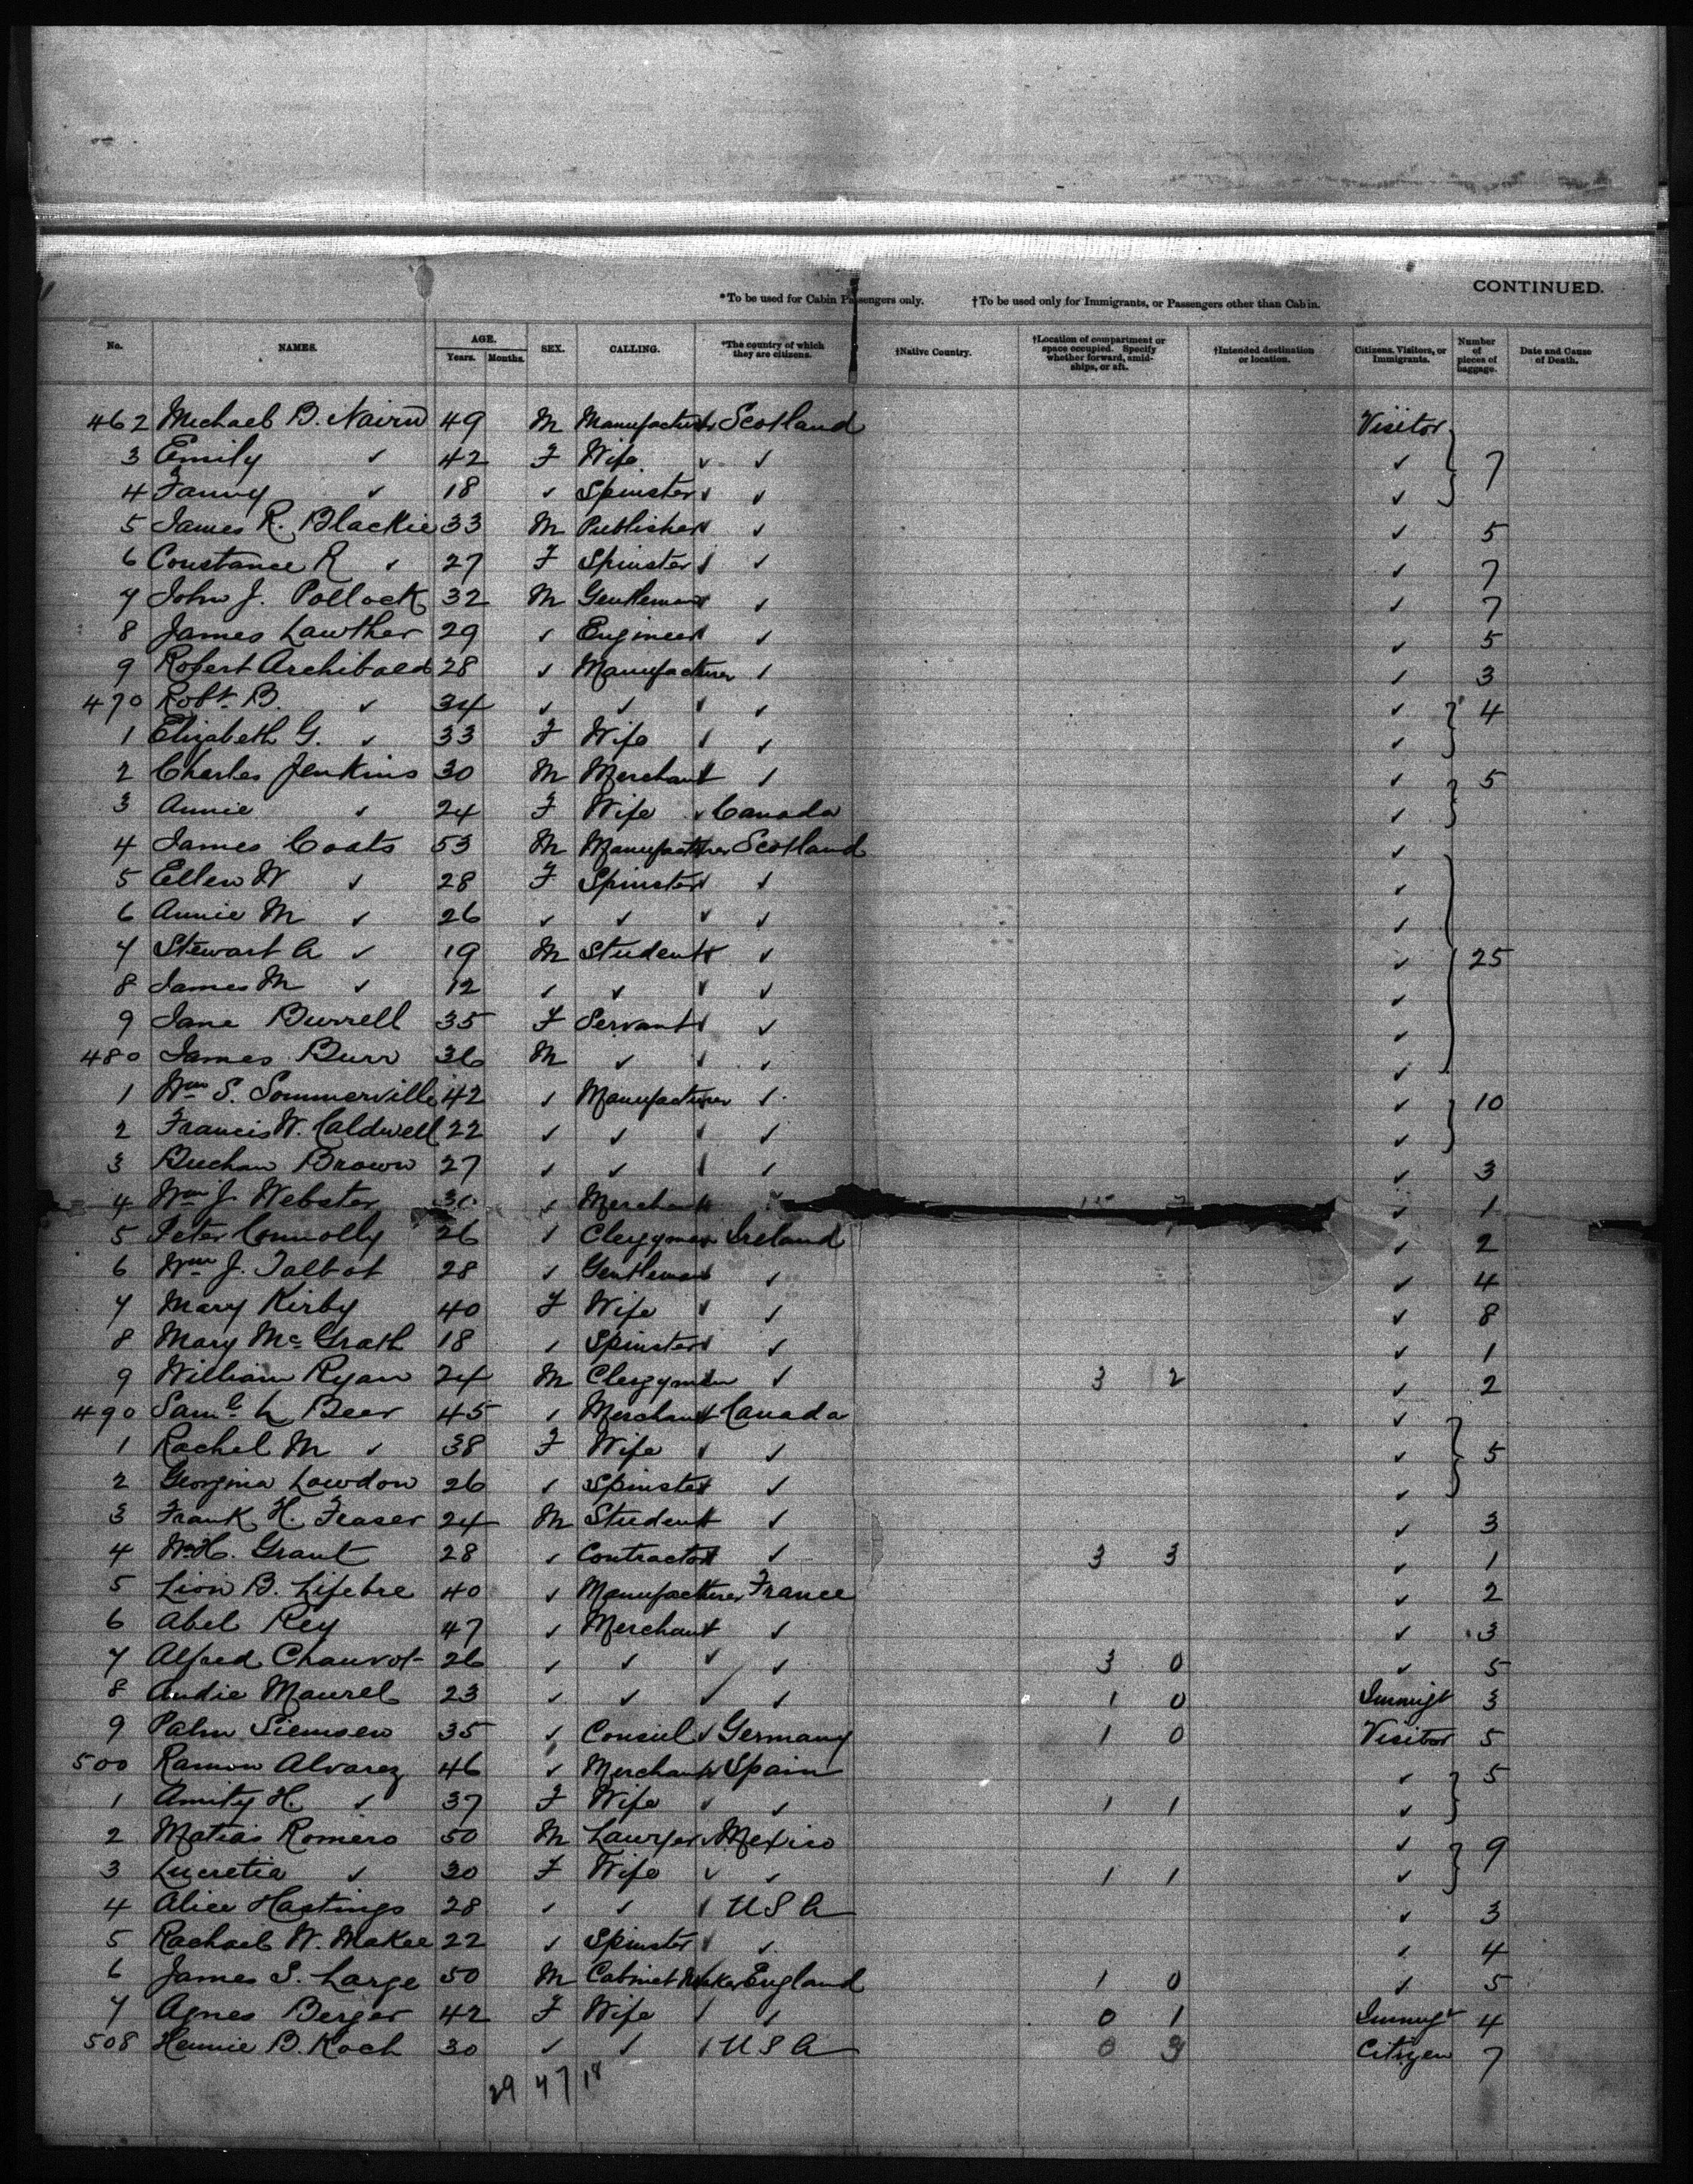 CONTINUED.
*To be used for Cabin Passengers only. †To be used only for Immigrants, or Passengers other than Cabin.
No. NAMES. AGE. Years. Months. SEX. CALLING. *The country of which they are citizens. †Native Country. †Location of compartment or space occupied. Specify whether forward, amidships, or aft. †Intended destination or location. Citizens, Visitors, or Immigrants. Number of pieces of baggage. Date and Cause of Death.
462 Michael B. Nairn 49 M Manufacturer Scotland Visitor
3 Emily ✓ 42 F Wife ✓ ✓ ✓ 7
4 Fanny ✓ 18 ✓ Spinster ✓ ✓ ✓
5 James R. Blackie 33 M Publisher ✓ ✓ 5
6 Constance R ✓ 27 F Spinster ✓ ✓ ✓ 7
7 John J. Pollock 32 M Gentleman ✓ ✓ 7
8 James Lawther 29 ✓ Engineer ✓ ✓ 5
9 Robert Archibald 28 ✓ Manufacturer ✓ ✓ 3
470 Robt. B. ✓ 34 ✓ ✓ ✓ ✓ ✓ 4
1 Elizabeth G. ✓ 33 F Wife ✓ ✓ ✓
2 Charles Jenkins 30 M Merchant ✓ ✓ 5
3 Annie ✓ 24 F Wife ✓ Canada ✓
4 James Coats 53 M Manufacturer Scotland ✓
5 Ellen W ✓ 28 F Spinster ✓ ✓
6 Annie M ✓ 26 ✓ ✓ ✓ ✓ ✓
7 Stewart A ✓ 19 M Student ✓ ✓ 25
8 James M ✓ 12 ✓ ✓ ✓ ✓ ✓
9 Jane Burrell 35 F Servant ✓ ✓ ✓
480 James Burr 36 M ✓ ✓ ✓ ✓
1 Wm S. Sommerville 42 ✓ Manufacturer ✓ ✓ 10
2 Francis W. Caldwell 22 ✓ ✓ ✓ ✓ ✓
3 Buchan Brown 27 ✓ ✓ ✓ ✓ ✓ 3
4 Wm J. Webster ✓ Merchant ✓ 1
5 Peter Connolly 26 ✓ Clergyman Ireland ✓ 2
6 Wm J. Talbot 28 ✓ Gentleman ✓ ✓ 4
7 Mary Kirby 40 F Wife ✓ ✓ ✓ 8
8 Mary McGrath 18 ✓ Spinster ✓ ✓ ✓ 1
9 William Ryan 24 M Clergyman ✓ 3 2 ✓ 2
490 Saml. L Beer 45 ✓ Merchant Canada ✓
1 Rachel M ✓ 38 F Wife ✓ ✓ ✓ 5
2 Georgina Lowdon 26 ✓ Spinster ✓ ✓
3 Frank H. Fraser 24 M Student ✓ ✓ 3
4 W.H. Grant 28 ✓ Contractor ✓ 3 3 ✓ 1
5 Lion B. Lifebre 40 ✓ Manufacturer France ✓ 2
6 Abel Rey 47 ✓ Merchant ✓ ✓ 3
7 Alfred Chauvot 26 ✓ ✓ ✓ ✓ 3 0 ✓ 5
8 Andie Maurel 23 ✓ ✓ ✓ ✓ 1 0 Immigt 3
9 Palm Siemsen 35 ✓ Consul ✓ Germany 1 0 Visitor 5
500 Ramon Alvarez 46 ✓ Merchant Spain ✓ 5
1 Amity H. ✓ 37 F Wife ✓ ✓ 1 1 ✓
2 Matias Romero 50 M Lawyer Mexico ✓ 9
3 Lucretia ✓ 30 F Wife ✓ ✓ 1 1 ✓
4 Alice Hastings 28 ✓ ✓ ✓ U S A ✓ 3
5 Rachael W. Makee 22 ✓ Spinster ✓ ✓ ✓ 4
6 James S. Large 50 M Cabinet Maker England 1 0 ✓ 5
7 Agnes Berger 42 F Wife ✓ ✓ 0 1 Immigt 4
508 Hennie B. Koch 30 ✓ ✓ ✓ U S A 0 3 Citizen 7
29 47 18